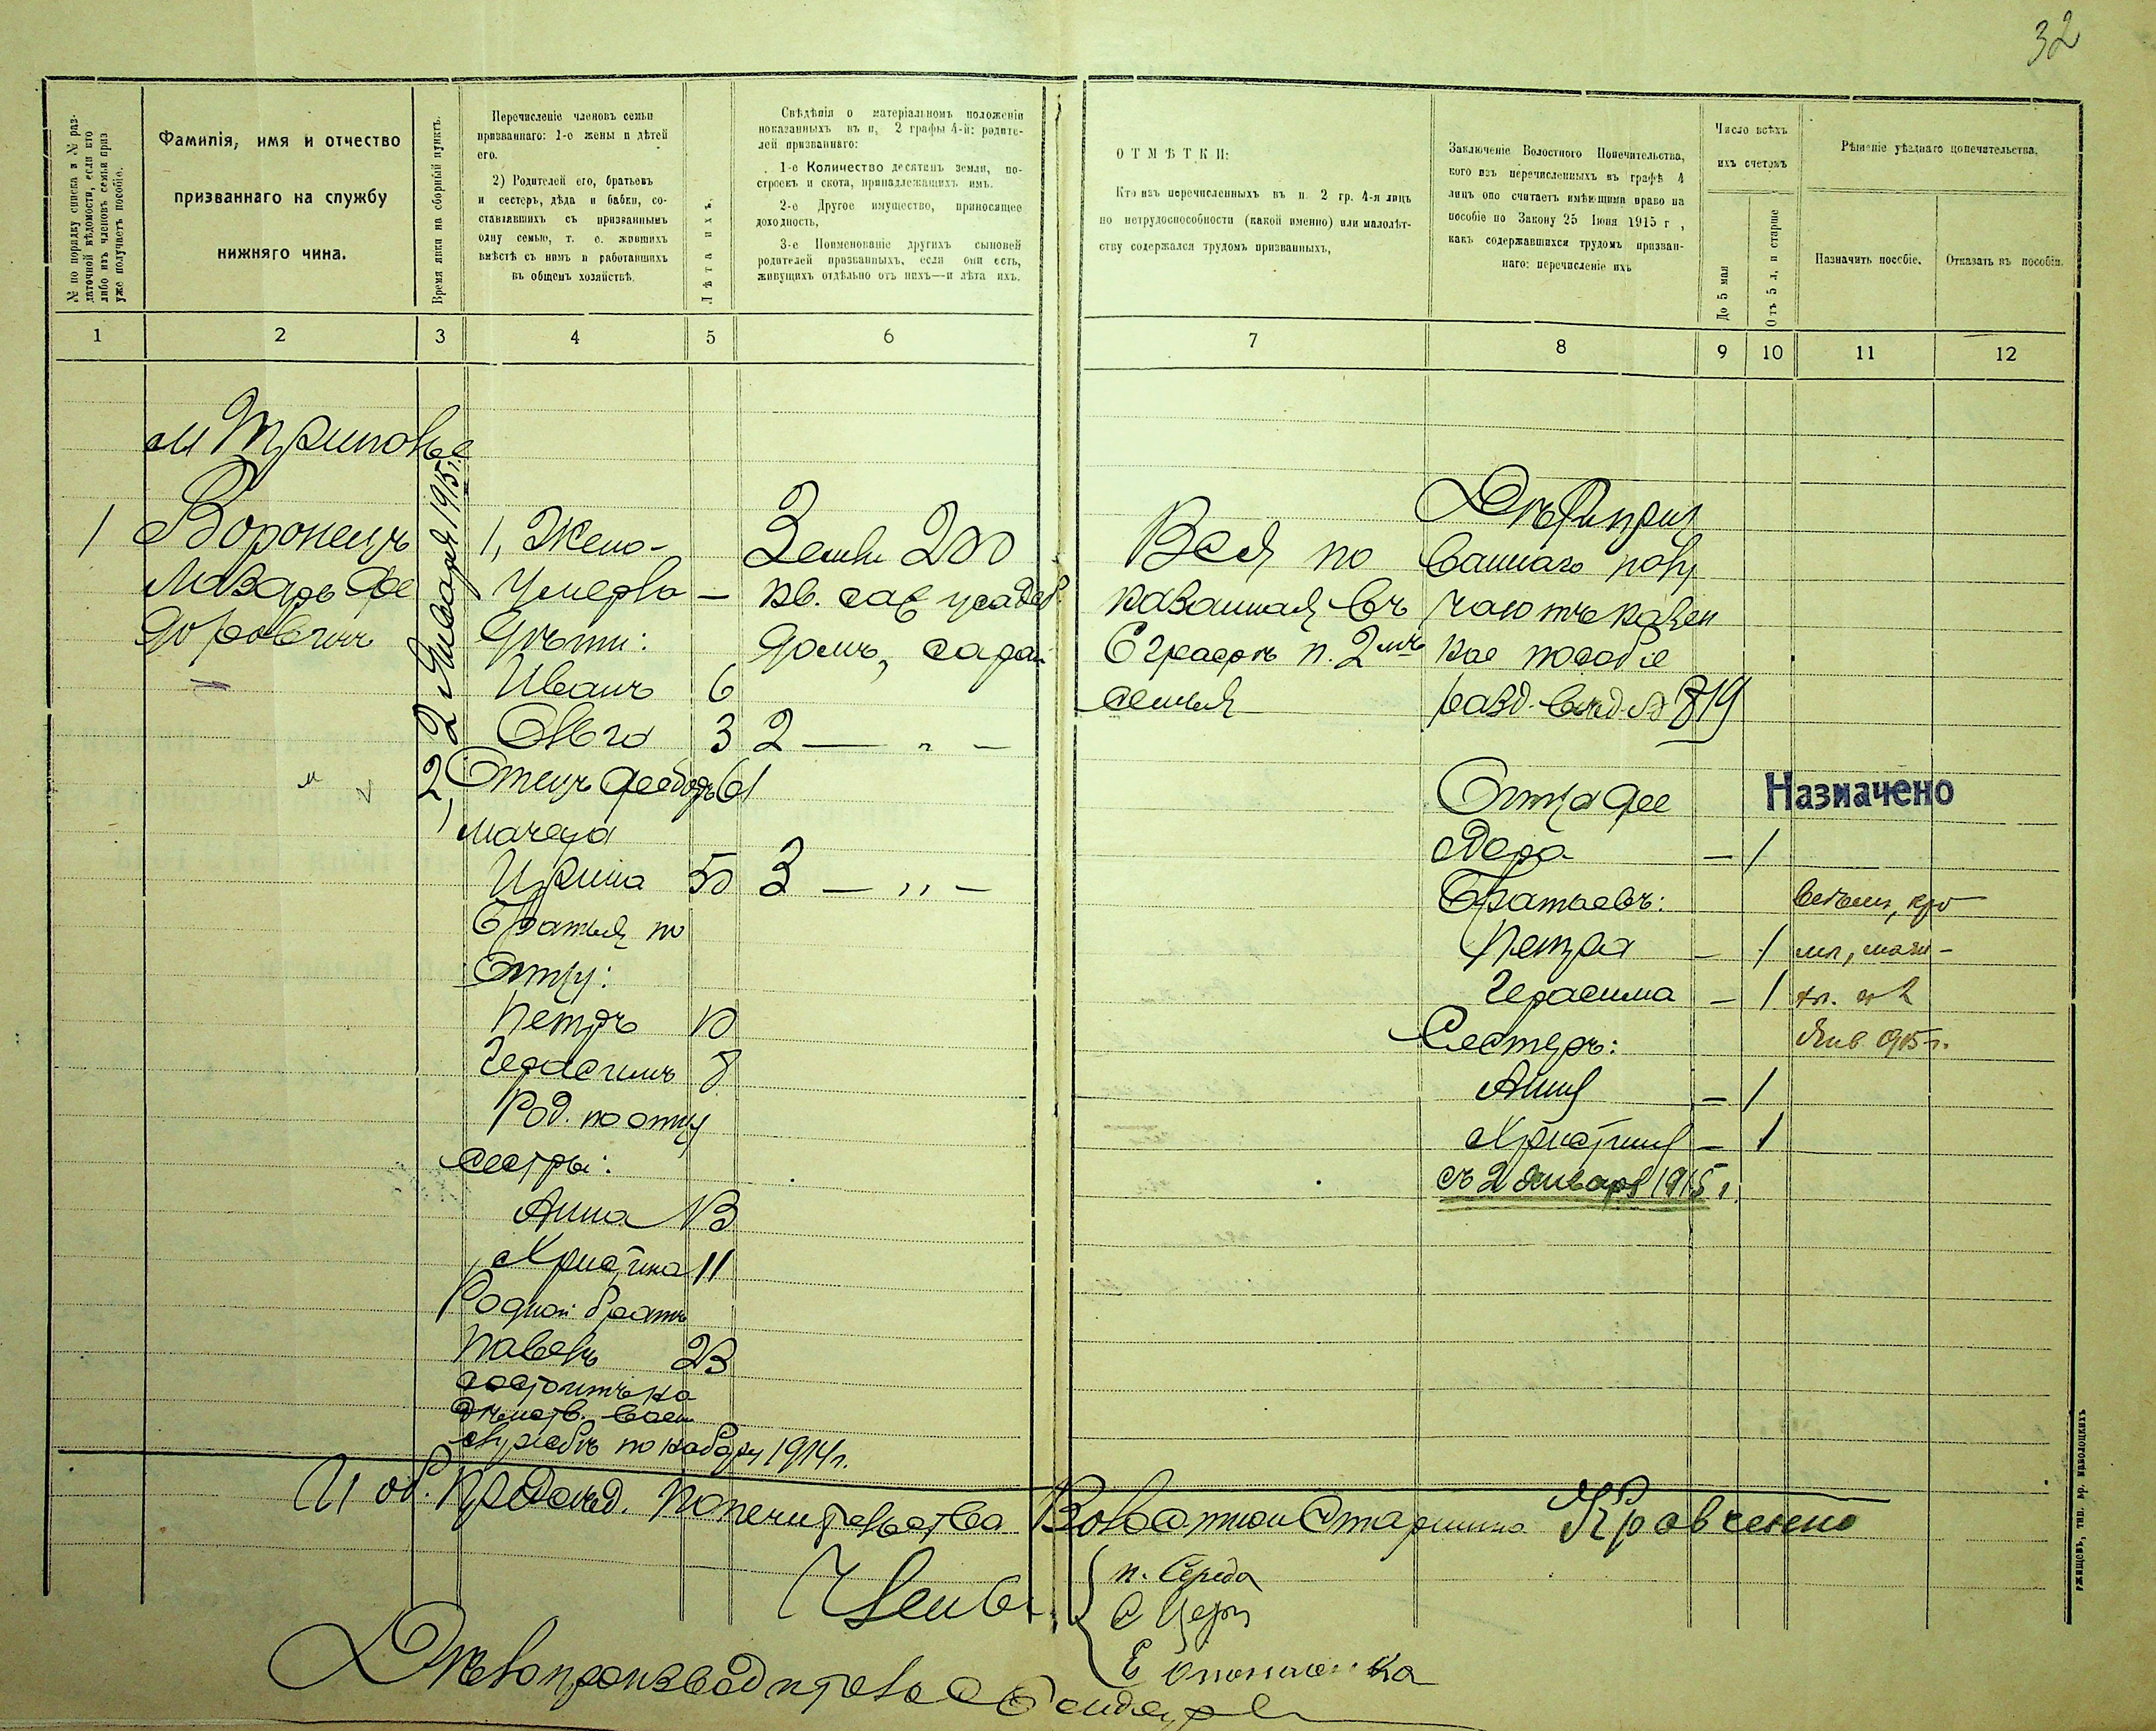 32
№ по порядку списка и № раз-
даточной вѣдомости, если кто
либо изъ членовъ семьи приз
уже получаетъ пособіе.
Фамилія, имя и отчество
призваннаго на службу
нижняго чина.
Время явки на сборный пунктъ.
Перечисленіе членовъ семьи
призваннаго: 1-е жены и дѣтей
его.
2) Родителей его, братьевъ
и сестеръ, дѣда и бабки, со-
ставлявшихъ съ призваннымъ
одну семью, т. е. жившихъ
вмѣстѣ съ нимъ и работавшихъ
въ общемъ хозяйствѣ.
Лѣта ихъ.
Свѣдѣнія о матеріальномъ положеніи
показанныхъ въ п, 2 графы 4-й: родите-
лей призваннаго:
1-е Количество десятинъ земли, по-
строекъ и скота, принадлежащихъ имъ.
2-е Другое имущество, приносящее
доходность,
3-е Поименованіе другихъ сыновей
родителей призванныхъ, если они есть,
живущихъ отдѣльно отъ нихъ—и лѣта ихъ.
ОТМѢТКИ:
Кто изъ перечисленныхъ въ п 2 гр. 4-я лицъ
по нетрудоспособности (какой именно) или малолѣт-
ству содержался трудомъ призванныхъ,
Заключеніе Волостного Попечительства,
кого изъ перечисленныхъ въ графѣ 4
лицъ оно считаетъ имѣющими право на
пособіе по Закону 25 Іюня 1915 г ,
какъ содержавшихся трудомъ призван-
наго: перечисленіе ихъ
Число всѣхъ
ихъ счетомъ
До 5 мая
Отъ 5 л, и старше
Рѣшеніе уѣзднаго попечительства.
Назначить пособіе.
Отказать въ пособіи.
1 2 3 4 5 6 7 8 9 10 11 12
м Триполье
1
Воронецъ
Лазарь Фе
доровичъ
2 Января 1915 г.
1, Жена -
Умерла —
Дѣти:
Иванъ 6
Ольга 3
2, Отецъ Феодоръ 61
Мачеха
Ирина 50
Братья по
Отцу:
Петръ 10
Герасимъ 8
Род. по отцу
сестры:
Анна 13
Христина 11
Родной братъ
Павелъ 23
состоитъ на
дѣйств. воен
службѣ по набору 1914 г.
Земли 200
кв. саж усадеб.
Домъ, сарай
2 — " —
3 — " —
Вся по
казанная въ
6 графѣ п. 2мъ
семья
Дѣти приз
ваннаго полу
чаютъ казен
ное пособіе
разд. вѣд. № 819
Отца Фе
одора — 1
Братьевъ:
Петра — 1
Герасима — 1
Сестеръ:
Анну — 1
Христину — 1
съ 2 Января 1915 г.
Назначено
всѣмъ, кро
Янв. 915 г.
И об. Предсѣд. Попечительства Волостной Старшина Кравченко
Члены
П. Середа
Дѣлопроизводитель
ржищевъ, тип. бр. наволоцкихъ